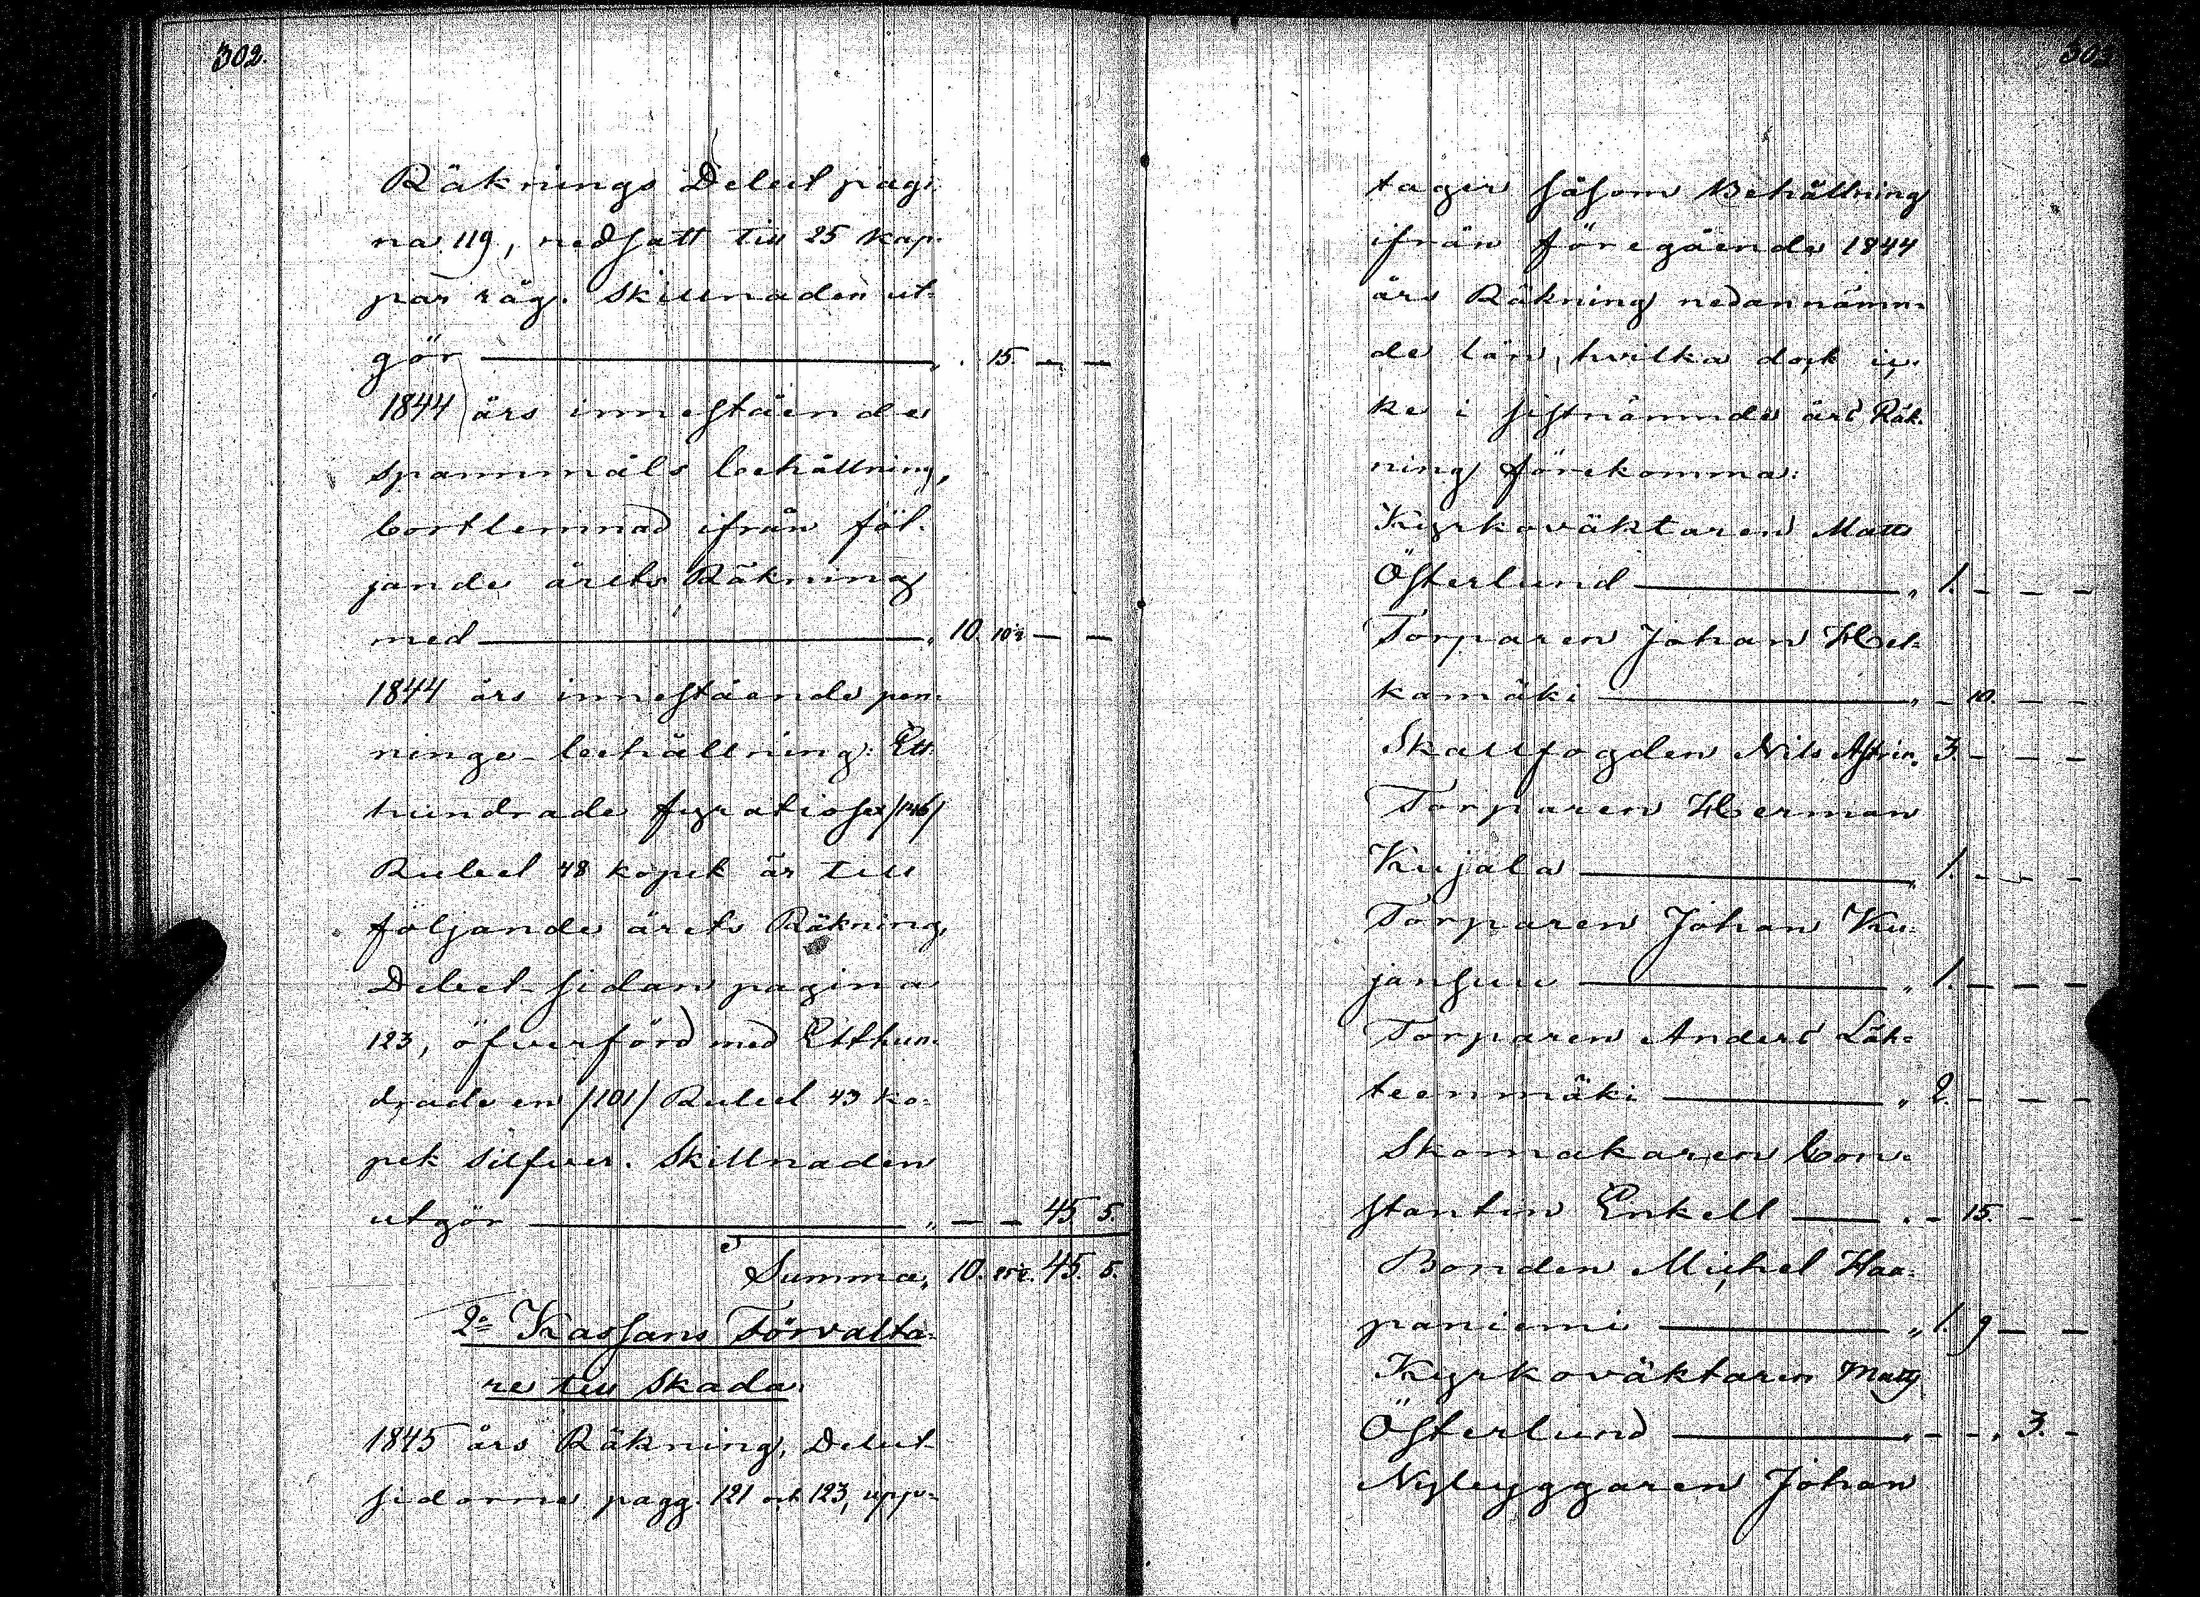 302.
Räknings Debet pagi-
na 119, nedsatt till 25 kap-
par råg. Skillnaden ut-
gör „ . 15. — —
1844 års innestående
spannmåls behållning,
bortlemnad ifrån föl-
jande årets Räkning
med „ 10. 10½ — —
1844 års innestående pen-
ninge-behållning: Ett-
hundrade fyratiosex /146/
Rubel 48 kopek är till
följande årets Räkning,
Debet-sidan pagina
123, öfverförd med Etthun-
drade en /101/ Rubel 43 ko-
pek silfver. Skillnaden
utgör „ — — 45 5.
Summa, 10. 25½. 45. 5.
2o Kassans Förvalta-
re till skada.
1845 års Räkning, Debet-
sidorne pagg. 121 och 123, upp-
303
tager såsom Behållning
ifrån föregående 1844
års Räkning nedannämn-
de lån, hvilka dock ic-
ke i sistnämnde års Räk-
ning förekomma:
Kyrkoväktaren Matts
Österlund „ 1. — — —
Torparen Johan Het-
kamäki „ — 10. — —
Skallfogden Nils 3. — — —
Torparen Herman
Kujala „ 1. — — —
Torparen Johan Ku-
jansuu „ 1. — — —
Torparen Anders Läh-
teenmäki „ 2. — — —
Skomakaren Con-
stantin Enkell „ — 15. — —
Bonden Michel Haa-
paniemi „ 1. 9 — —
Kyrkoväktaren Matts
Österlund „ — — . 3. —
Nybyggaren Johan